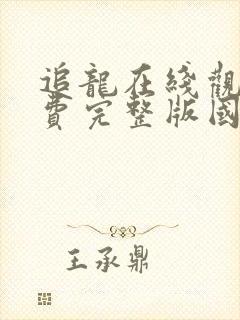 追龍在綫觀
費完整版國
王承鼎